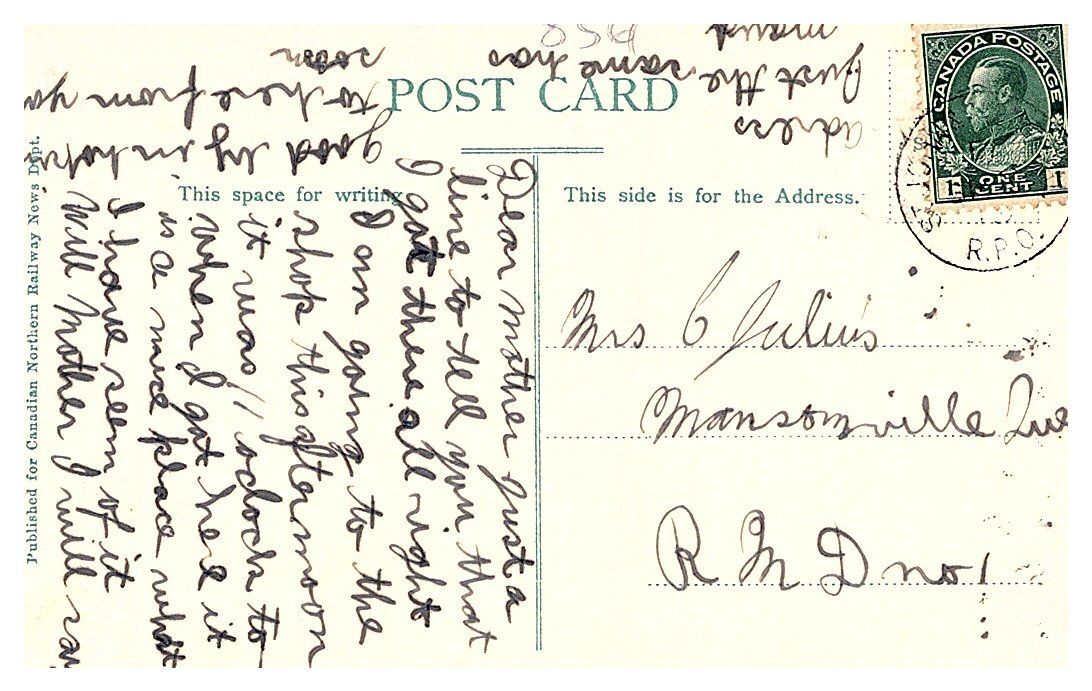 POST CARD
This space for writing
This side is for the Address.
Published for Canadian Northern Railway News Dept.
CANADA POSTAGE
1 ONE CENT 1
R.P.O.
Mrs C Julius
Mansonville Que
R M D no 1
Dear mother just a
line to tell you that
I got there all right
I am going to the
shop this afternoon
it was 11 oclock to
when I got here it
is a nice place what
I have seem of it
Will Mother I will say
good by
to here from yo
soon
adress
just the same has
maud